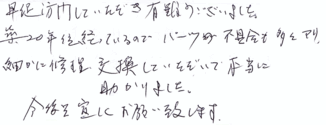 早速訪問していただき有難うございました。
築20年位経っているので パーツの不具合も多々アリ、
細かに修理、交換していただいて本当に
助かりました。
今後も宜しくお願い致します。